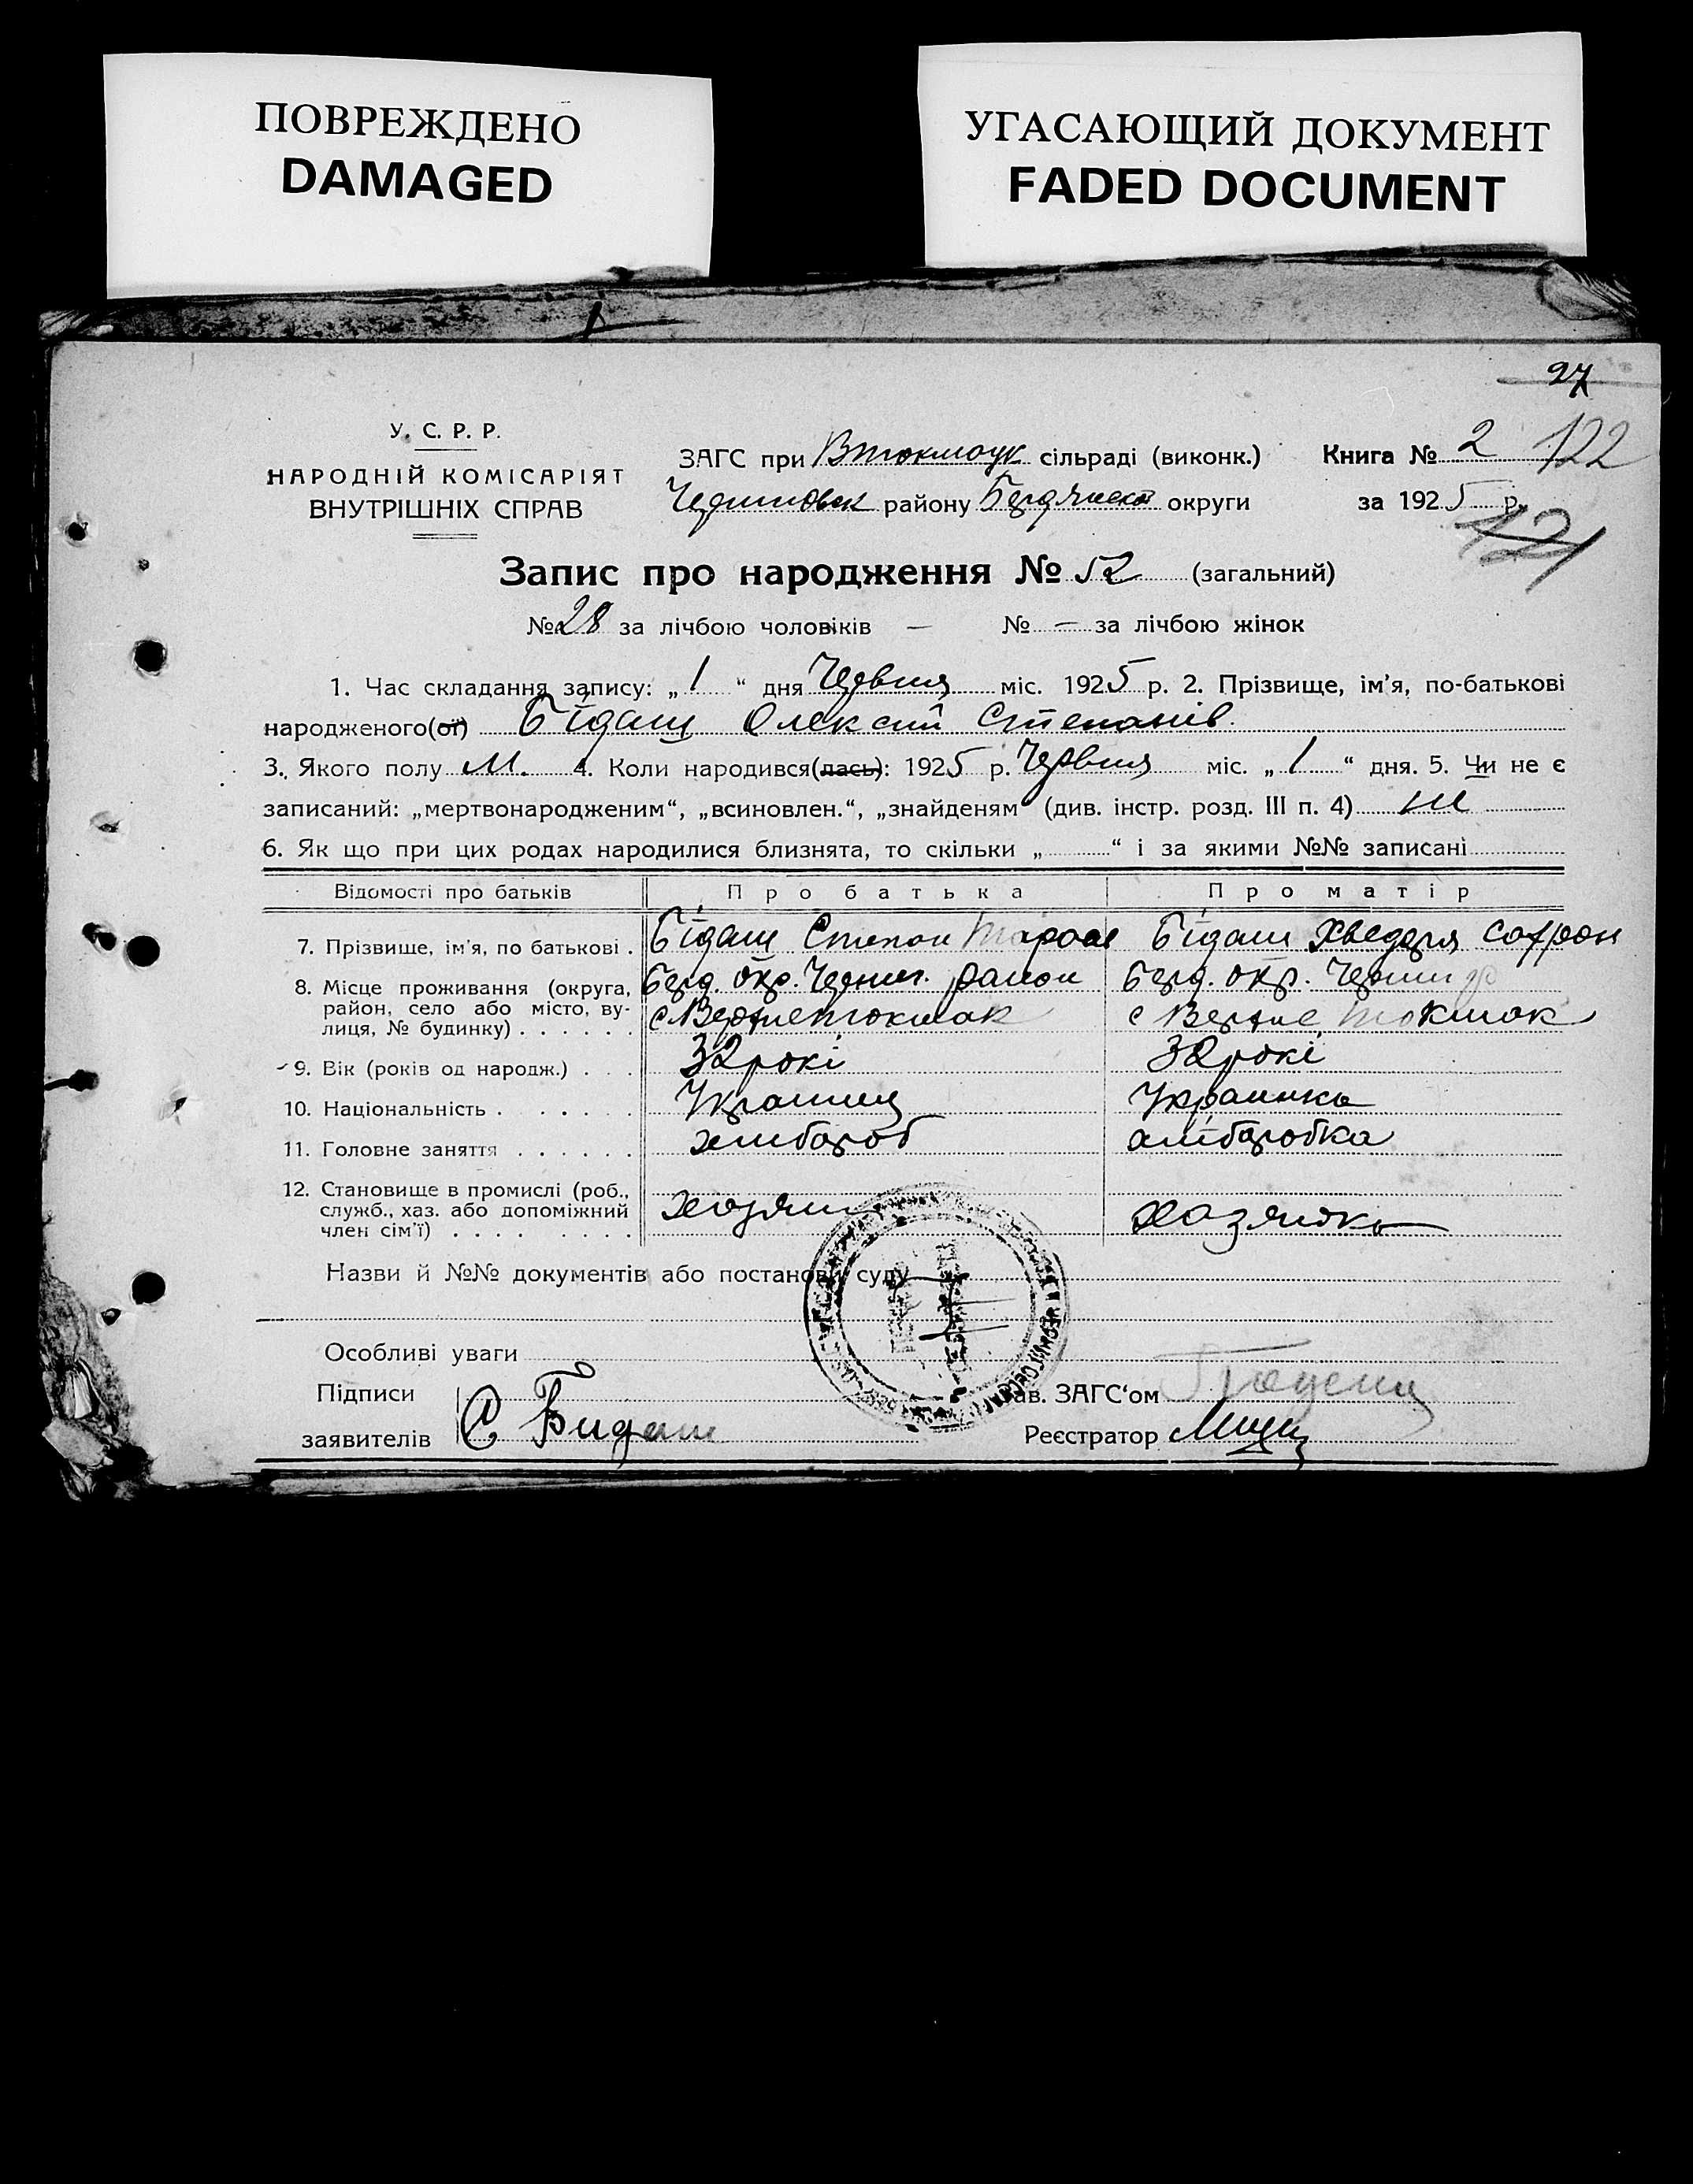 ПОВРЕЖДЕНО
DAMAGED
УГАСАЮЩИЙ ДОКУМЕНТ
FADED DOCUMENT
27
У. С. Р. Р.
НАРОДНІЙ КОМІСАРІЯТ
ВНУТРІШНІХ СПРАВ
ЗАГС при Втокмацк сільраді (виконк.)
району Бердянсько округи
Книга № 2 122
за 1925 р.
121
Запис про народження № 52 (загальний)
№ 28 за лічбою чоловіків — № — за лічбою жінок
1. Час складання запису: „ 1 “ дня Червня міс. 1925 р. 2. Прізвище, ім'я, по-батькові
народженого(ої) Бідаш Олексій Степанів
3. Якого полу М. 4. Коли народився(лась): 1925 р. Червня міс. „ 1 “ дня. 5. Чи не є
записаний: „мертвонародженим“, „всиновлен.“, „знайденям“ (див. інстр. розд. III п. 4) ні
6. Як що при цих родах народилися близнята, то скільки „ “ і за якими №№ записані
Відомості про батьків Про батька Про матір
7. Прізвище, ім'я, по батькові . Бідаш Степан Тарас Бідаш Хведора Софрон
8. Місце проживання (округа, Берд. окр. Черниг. район Берд. окр. Черниг р
район, село або місто, ву- с Верхнетокмак с Верхне Токмак
лиця, № будинку) . . . . . .
9. Вік (років од народж.) . . . 32 рокі 32 рокі
10. Національність . . . . . . Украинец Украинка
11. Головне заняття . . . . . . хлибороб хліборобка
12. Становище в промислі (роб.,
служб., хаз. або допоміжний хозяин хазяйка
член сім'ї) . . . . . . . .
Назви й №№ документів або постанови суду
Особливі уваги
Підписи Зав. ЗАГС'ом
заявителів С Бидаш Реєстратор